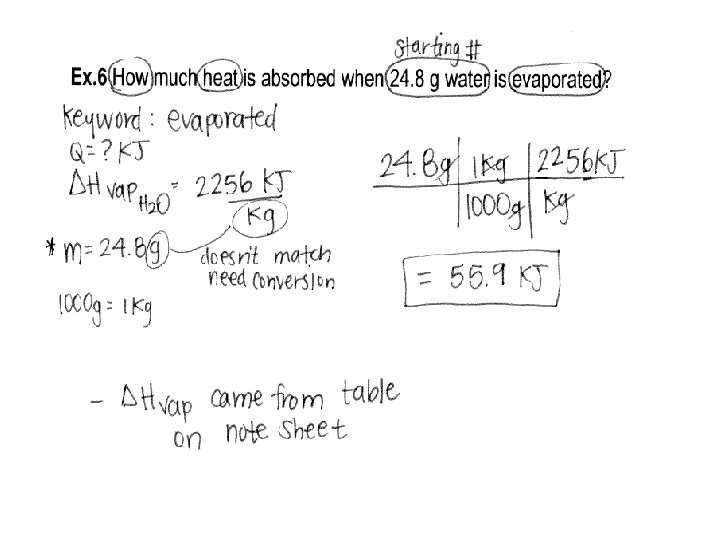 starting #
Ex.6 How much heat is absorbed when 24.8 g water is evaporated?
Keyword: evaporated
Q=? KJ
ΔHvap H2O = 2256 KJ
Kg
* m= 24.8g
doesn't match
need conversion
1000g = 1Kg
24.8g | 1Kg | 2256KJ
1000g | Kg
= 55.9 KJ
- ΔHvap came from table
on note sheet